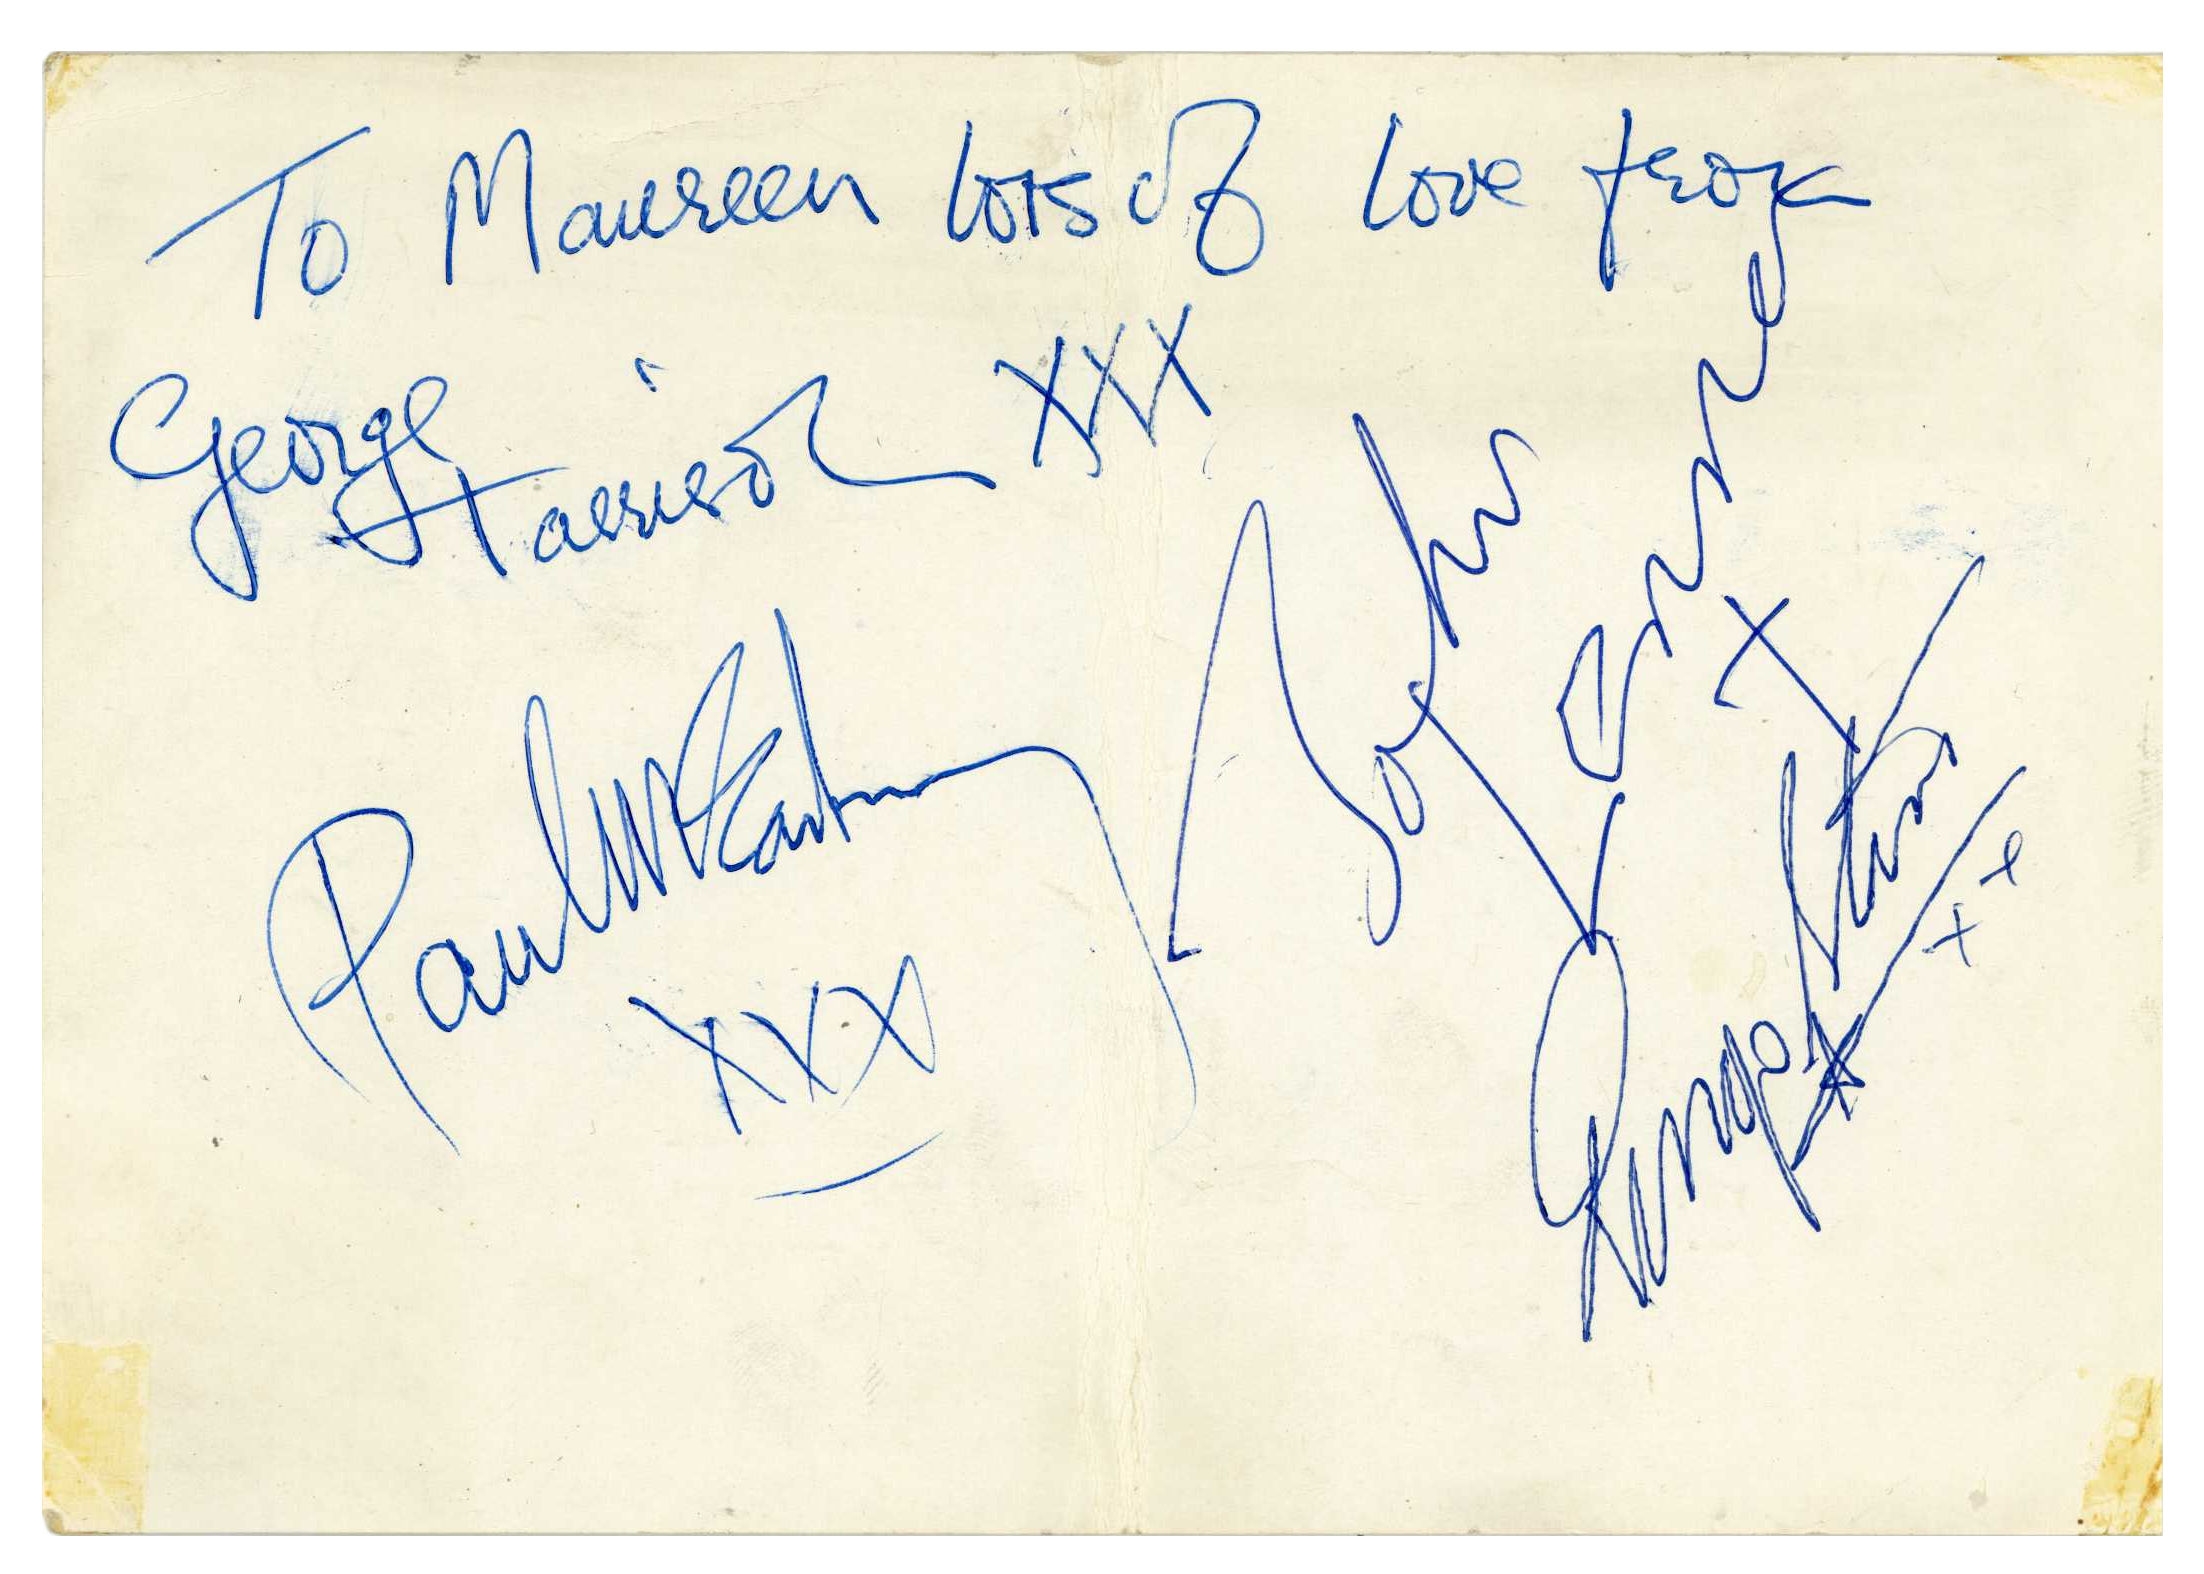 To Maureen lots of love from
George Harrison XXX
John Lennon X
Paul McCartney
XXX
Ringo Starr
x x